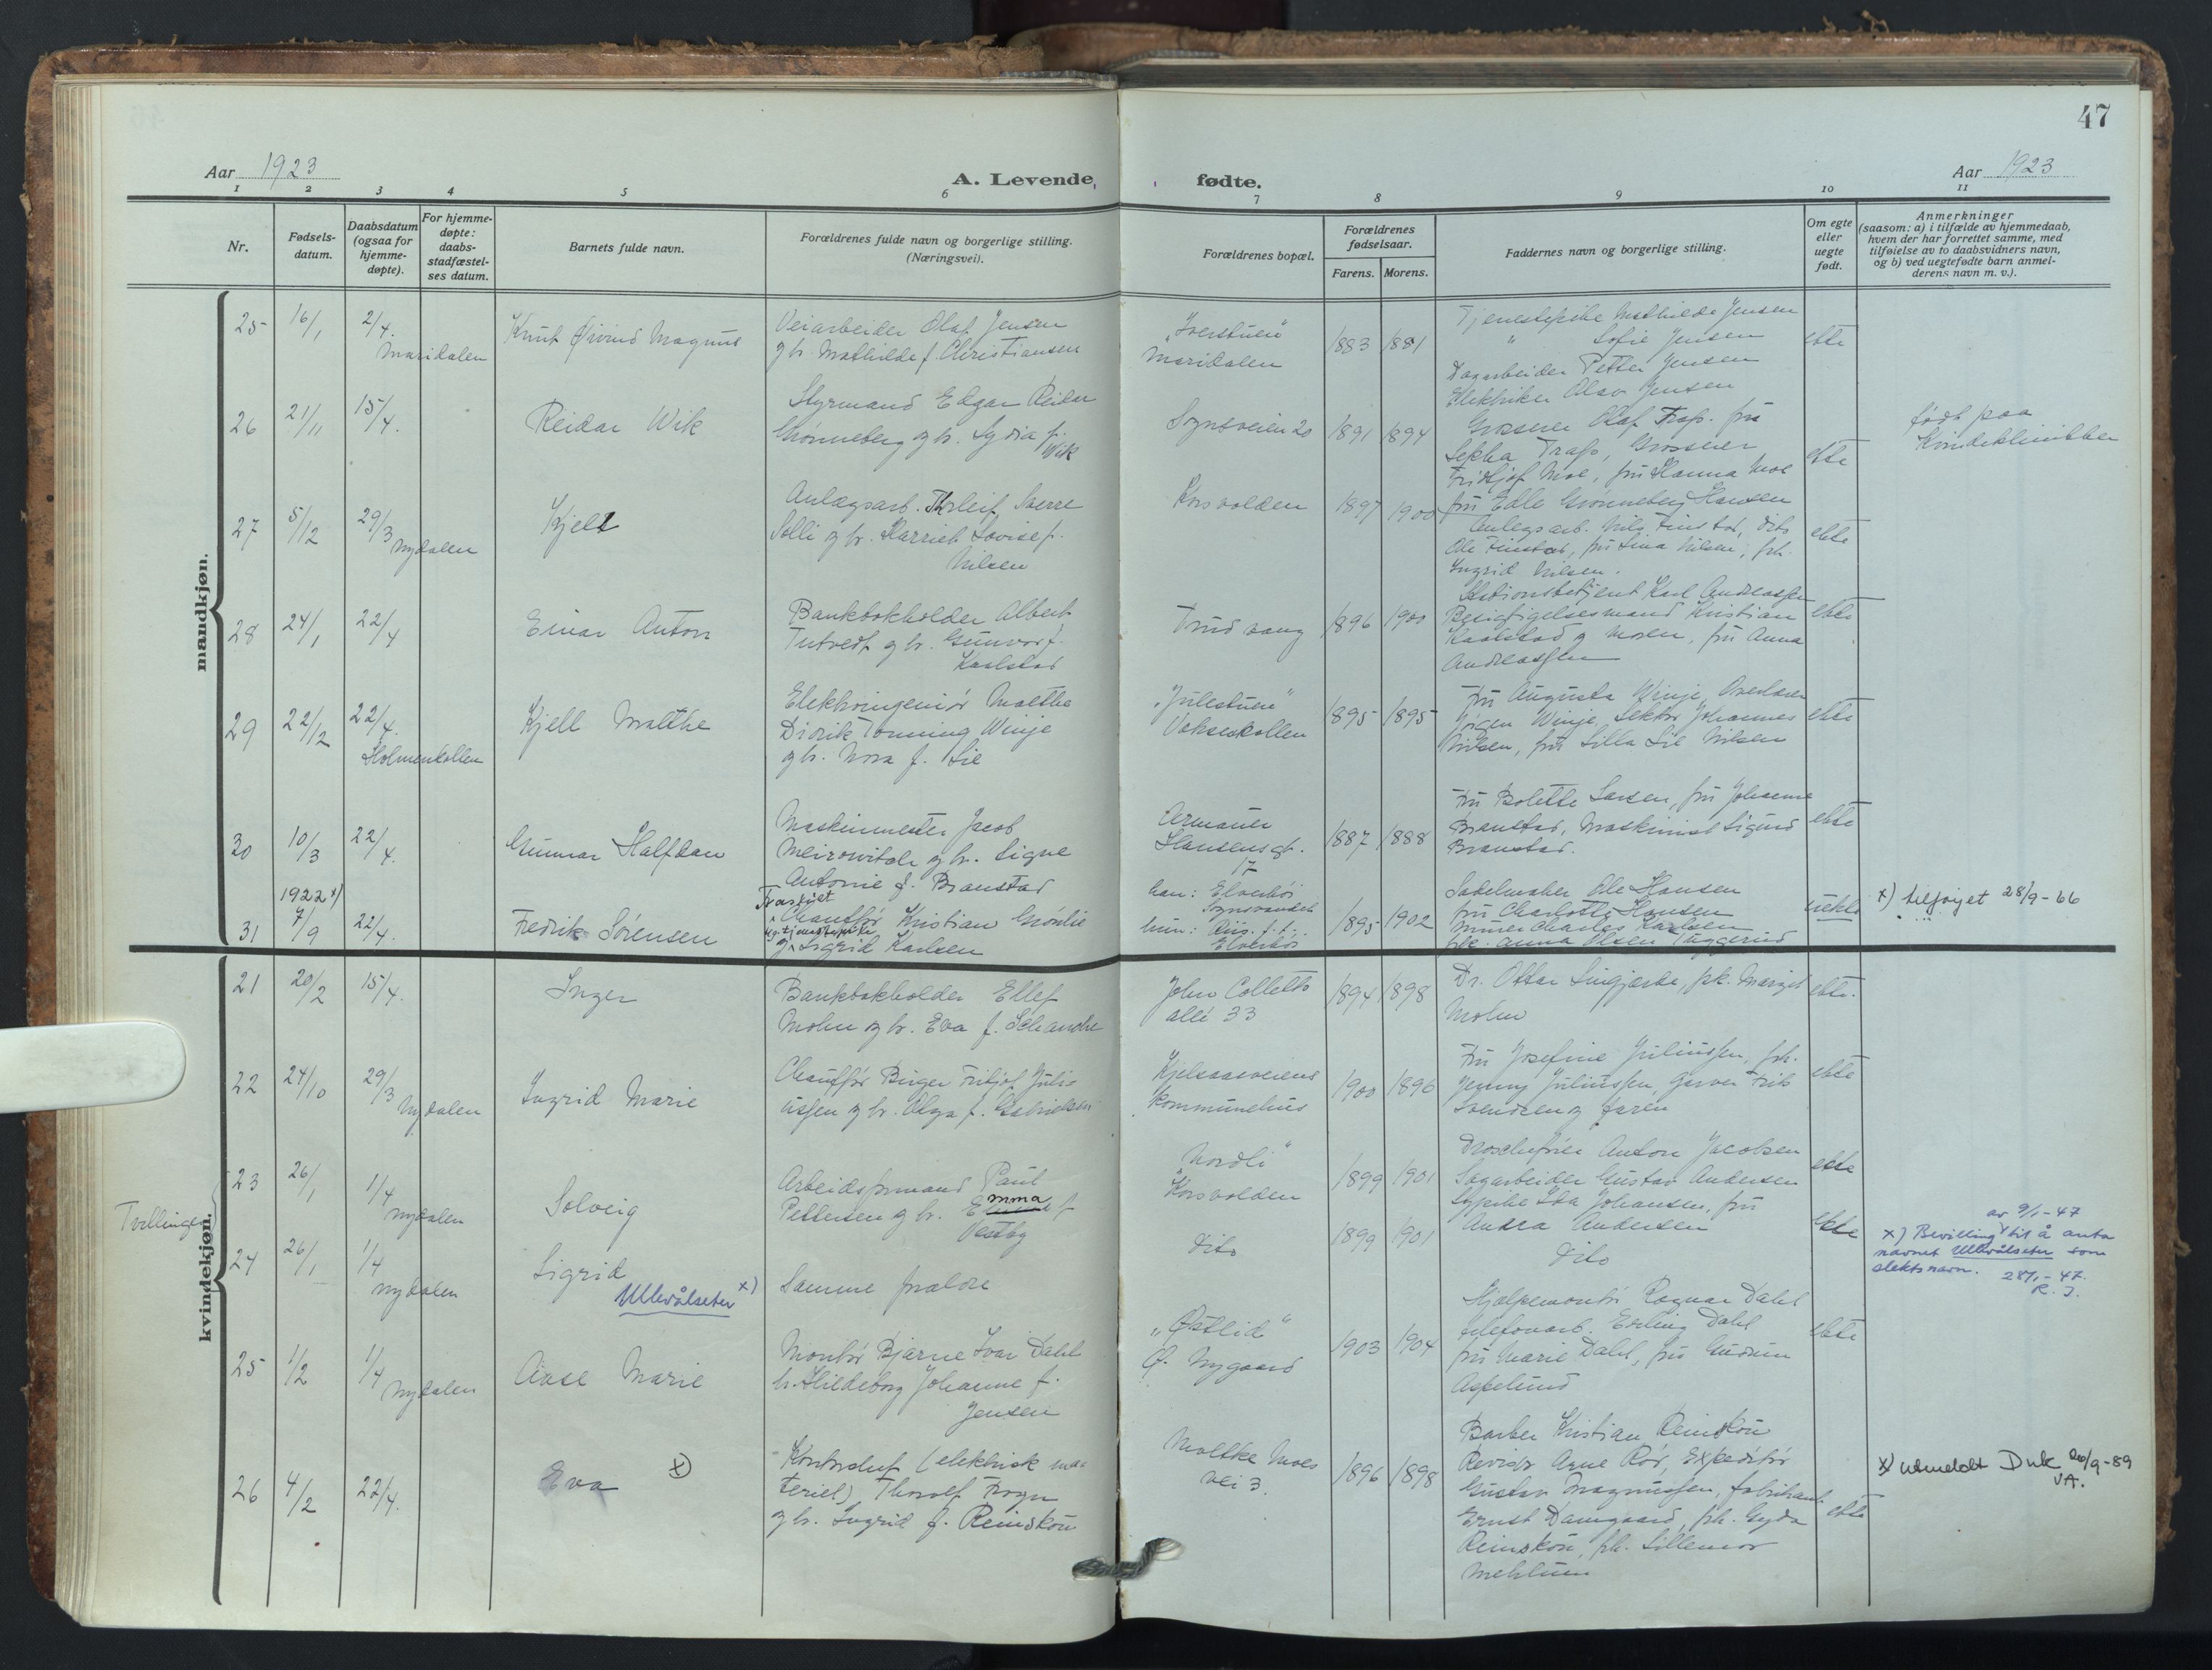 47
Aar 1923
A. Levende
fødte.
Aar 1923
1 2 3 4 5 6 7 8 9 10 11
Nr.
Fødsels-
datum.
Daabsdatum
(ogsaa for
hjemme-
døpte).
For hjemme-
døpte:
daabs-
stadfæstel-
ses datum.
Barnets fulde navn.
Forældrenes fulde navn og borgerlige stilling.
(Næringsvei).
Forældrenes bopæl.
Forældrenes
fødselsaar.
Farens. Morens.
Faddernes navn og borgerlige stilling.
Om egte
eller
uegte
født.
Anmerkninger
(saasom: a) i tilfælde av hjemmedaab,
hvem der har forrettet samme, med
tilføielse av to daabsvidners navn,
og b) ved uegtefødte barn anmel-
derens navn m. v.).
mandkjøn.
25 16/1 2/4.
Maridalen
Knut Øivind Magnus
Veiarbeider Olaf Jensen
og h. Mathilde f. Christiansen
"Iverstuen"
Maridalen
1883 1881
Tjenestepike Mathilde Jensen
" Sofie Jensen
Dagarbeider Petter Jensen
Elektriker Olav Jensen
ekte
26 21/11 15/4.
Reidar Wik
Styrmand Edgar Reidar
Grønneberg og h. Lydia f.
Wik
Sognsveien 20
1891 1894
Grosserer Olaf Trap. fru
Trap, Grosserer
Fridtjof Moe, fru Hanna Moe
fru Edle Grønneberg Hansen
ekte
født paa
Kvindeklinikken
27 5/12 29/3
Nydalen
Kjell
Anlægsarb. Thorleif Sverre
Solli og h. Harriet Lovise f.
Nilsen
Korsvolden
1897 1900
Anlegsarb. Nils Finstad, dito
Ole Finstad, fru Lina Nilsen, frk.
Ingrid Nilsen.
ekte
28 24/1 22/4
Einar Anton
Bankbokholder Albert
Tutvedt og h. Gunvor f.
Karlstad
Trudvang
1896 1900
Stationsbetjent Karl Andreassen
Besigtigelsesmand Kristian
Kaalstad og moren, fru Anna
Andreassen
ekte
29 22/12 22/4.
Holmenkollen
Kjell Malthe
Elektroingeniør Malthe
Didrik Tønning Winje
og h. Nora f. Lie
"Julestuen"
Voksenkollen
1895 1895
Fru Augusta Winje, Overlærer
Jørgen Winje, Lektor Johannes
Nilsen, fru Lilla Lie Nilsen
ekte
30 10/3 22/4.
Gunnar Halfdan
Maskinmester Jacob
Meirowitch og h. Signe
Antonie f. Branstad
Armauer
Hansensgt.
17
1887 1888
Fru Bolette Larsen, fru Johanne
Branstad, Maskinist Sigurd
Branstad.
ekte
31 1922 x)
7/9 22/4.
Fredrik Sørensen
Fraskilt
Chauffør Kristian Grønlie
ug. tjenestepike
og Sigrid Karlsen
han: Elverhøi
Sognsvandet
hun:
Elverhøi
1895 1902
Sadelmaker Ole Hansen
fru Charlotte Hansen
Murer Charles Karlsen
frk. Anna Olsen Tuggerud
uekte
x) tilføyet 28/9-66
kvindekjøn.
21 20/2 15/4.
Inger
Bankbokholder Ellef
Mohn og h. Eva f. Schanche
John Colletts
allé 33
1894 1898
Dr. Ottar Lingjærde, frk. Margit
Mohn
ekte.
22 24/10 29/3
Nydalen
Ingrid Marie
Chauffør Birger Fritjof Juli-
ussen og h. Olga f. Gabrielsen
Kjelsaasveiens
kommunehus
1900 1896
Fru Josefine Juliussen, frk.
Jenny Juliussen, garver Erik
Svendsen og faren
ekte
Tvillinger
23 26/1 1/4
Nydalen
Solveig
Arbeidsformand Paul
Pettersen og h. Emma f.
Vestby
"Nordli"
Korsvolden
1899 1901
Droscheeier Anton Jacobsen
Sagarbeider Gustav Andersen
Sypike Ida Johansen, fru
Andrea Andersen
ekte
24 26/1 1/4
Nydalen
Sigrid
Ullevålseter x)
Samme forældre
Dito
1899 1901
Dito
ekte
x) Bevilling av 9/1-47 til å anta
navnet Ullevålseter som
slektsnavn. 28/1-47.
R. J.
25 1/2 1/4
Nydalen
Aase Marie
Montør Bjarne Ivar Dahl
h. Hildeborg Johanne f.
Jensen
"Østlid"
Ø. Nygaard
1903 1904
Hjælpemontør Ragnar Dahl
telefonarb. Erling Dahl
fru Marie Dahl, fru Gudrun
Aspelund
ekte
26 4/2 22/4.
Eva x)
Kontorchef (elektrisk ma-
teriel) Thorolf Frogn
og h. Ingrid f. Reinskou
Moltke Moes
vei 3.
1896 1898
Barber Kristian Reinskou
Revisor Arne Rør, Expeditør
Gustav Magnussen, fabrikant
Ernst Damgaard, frk. Gyda
Reinskou, frk. Lillemor
Mehlum
ekte
x) utmeldt Dnk 20/9-89
VA.